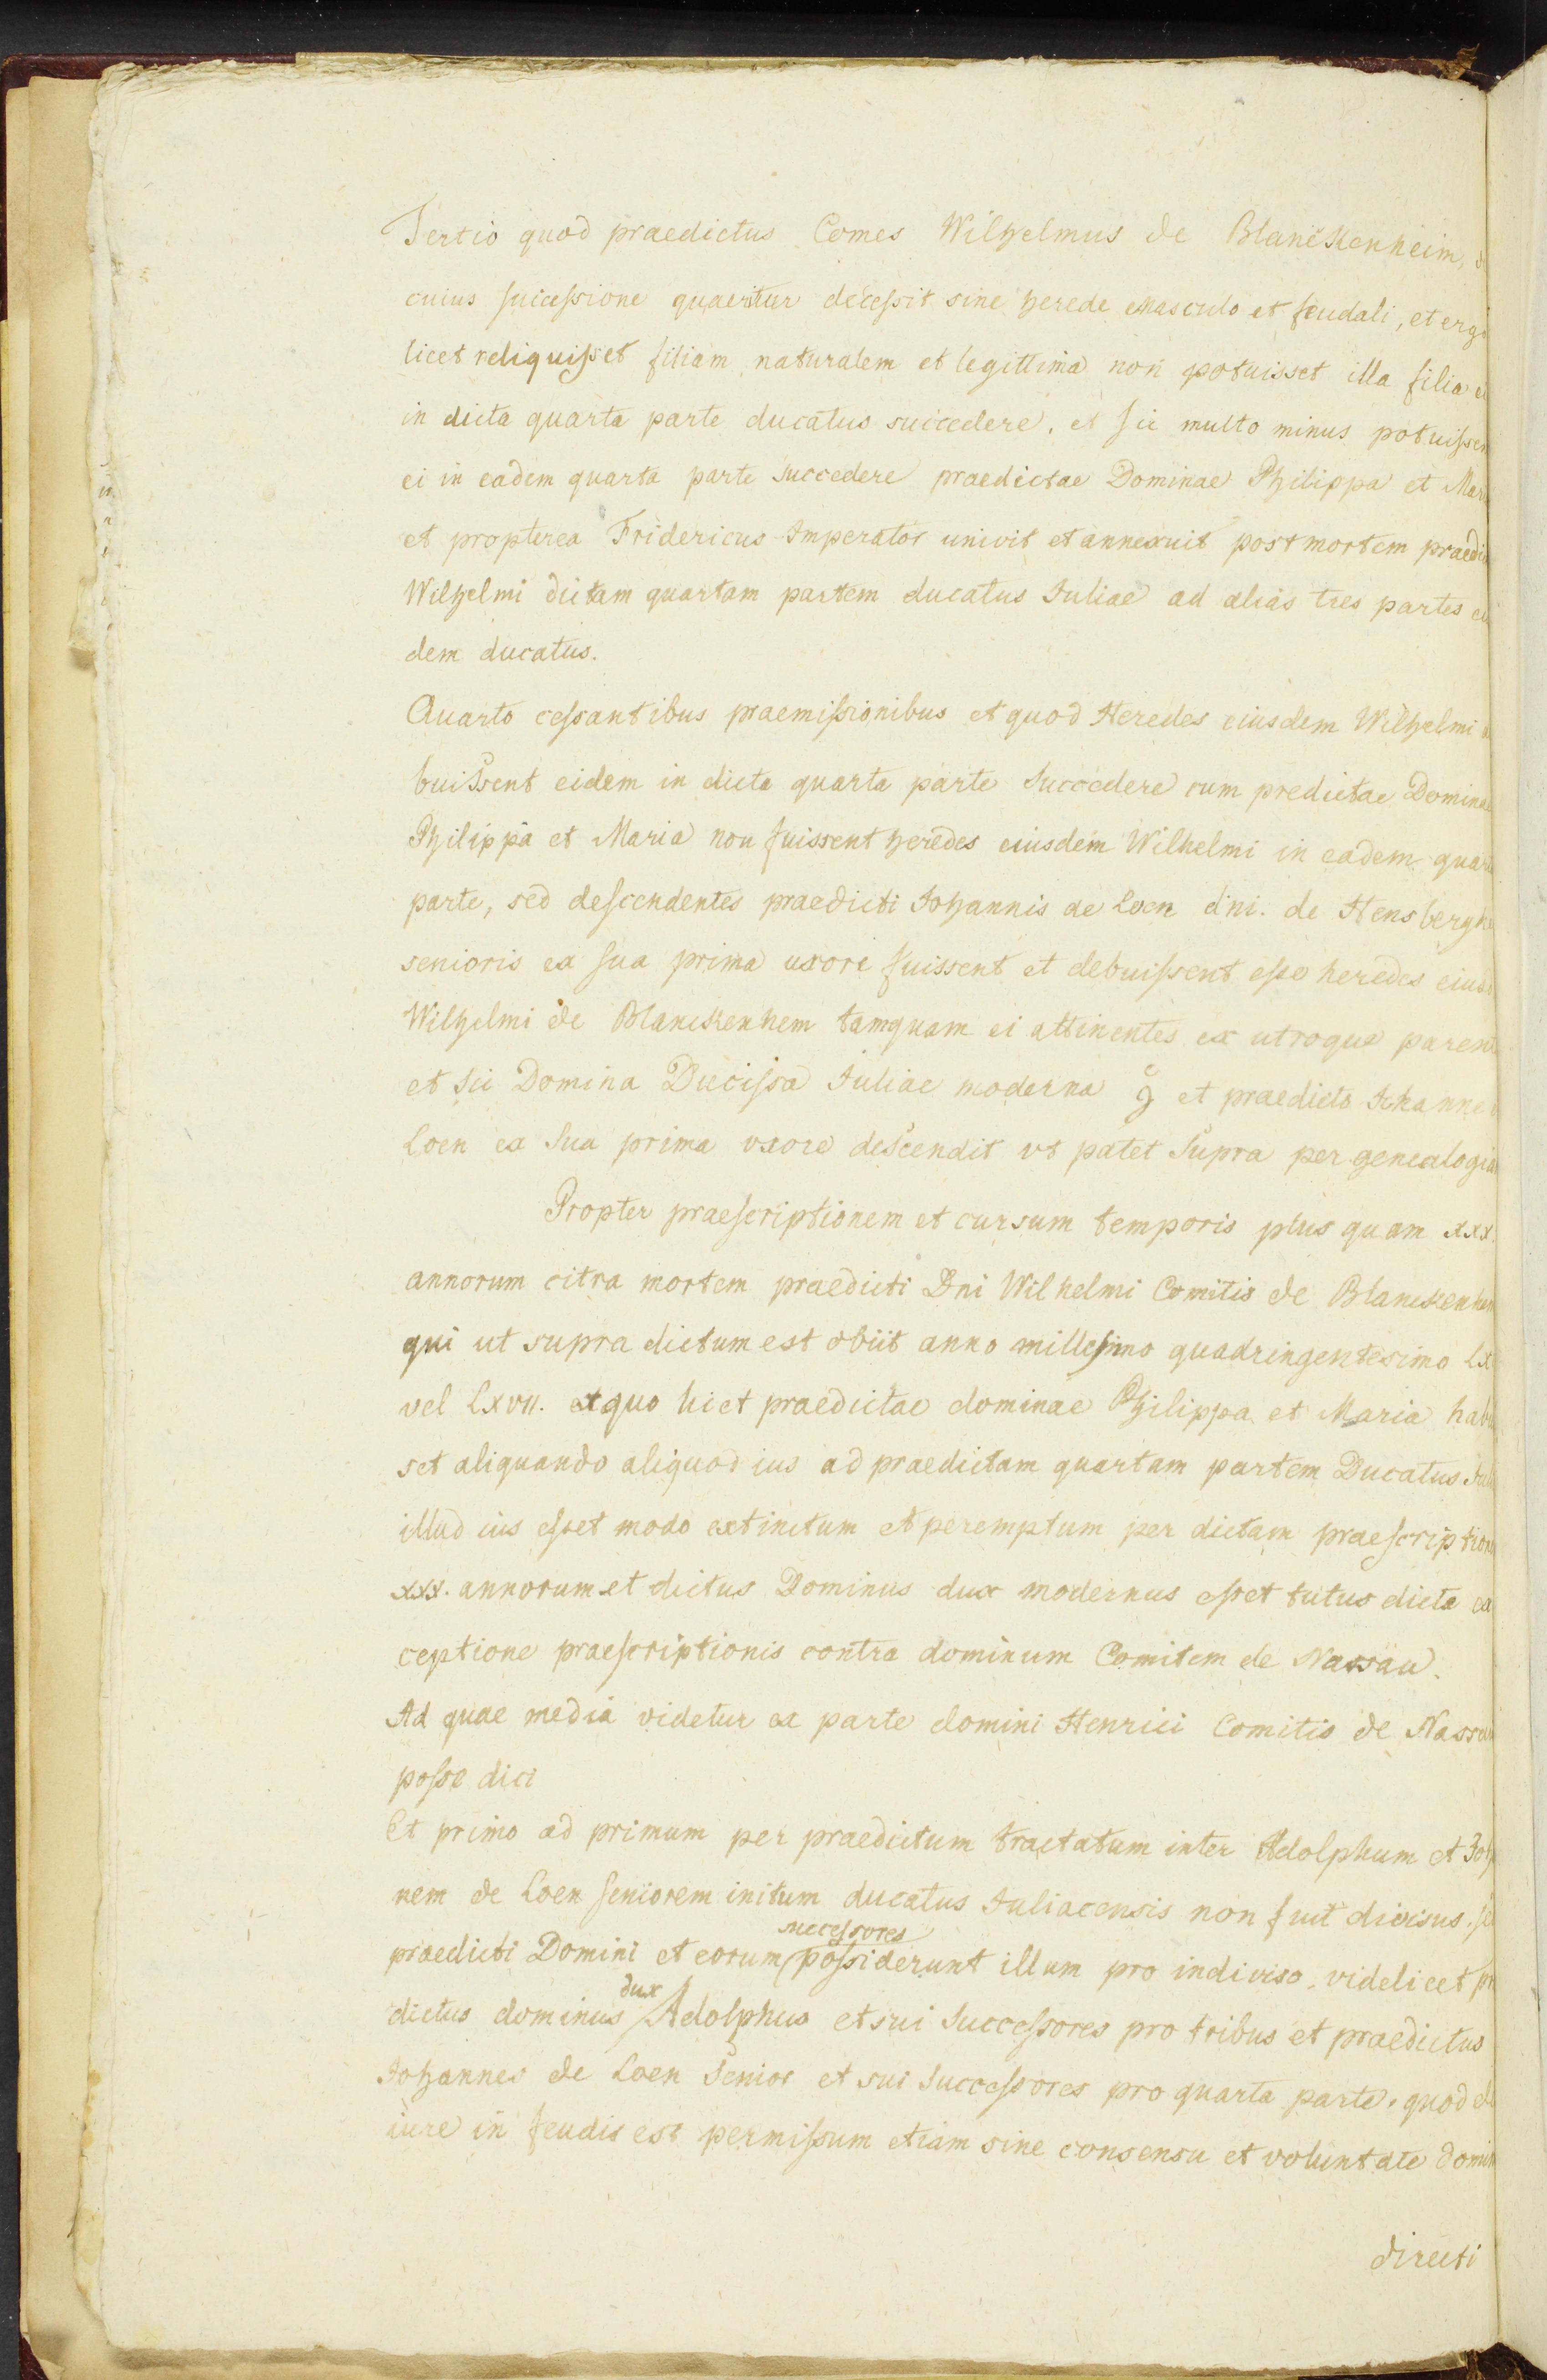 Tertio quod praedictus Comes Wilhelmus de Blanckenheim, d
cuius successione quaeritur decessit sine herede masculo et feudali, et ergo
licet reliquisset filiam naturalem et legittima non potuisset illa filia ei
in dicta quarta parte ducatus succedere. et sic multo minus potuissen
ei in eadem quarta parte succedere praedictae Dominae Philippa et Mari
et propterea Fridericus Imperator univit et annexuit post mortem praedic
Wilhelmi dictam quartam partem ducatus Juliae ad alias tres partes ei
dem ducatus.
Quarto cessantibus praemissionibus et quod Heredes eiusdem Wilhelmi d
buissent eidem in dicta quarta parte succedere cum predictae Dominae
Philippa et Maria non fuissent heredes eiusdem Wilhelmi in eadem quart
parte, sed descendentes praedicti Johannis de Loen dni. de Hensbergh
senioris ex sua prima uxore fuissent et debuissent esse heredes eiusd
Wilhelmi de Blanckenhem tamquam ei attinentes ex utroque paren
et sic Domina Ducissa Juliae moderna et praedicto Johanne
Loen ex sua prima vxore descendit vt patet supra per genealogia
Propter praescriptionem et cursum temporis plus quam xxx.
annorum citra mortem praedicti Dni Wilhelmi Comitis de Blanckenhen
qui ut supra dictum est obiit anno millesimo quadringentesimo Lx
vel Lxvii. ex quo licet praedictae dominae Philippa et Maria habu
set aliquando aliquod ius ad praedictam quartam partem Ducatus Juli
illud ius esset modo extinctum et peremptum per dictam praescription
xxx. annorum et dictus Dominus dux modernus esset tutus dicta ex
ceptione praescriptionis contra dominum Comitem de Nassau.
Ad quae media videtur ex parte domini Henrici Comitis de Nassau
posse dici
Et primo ad primum per praedictum tractatum inter Adolphum et Joh
nem de Loen seniorem initum ducatus Juliacensis non fuit divisus. se
praedicti Domini et eorum successores possiderunt illum pro indiviso. videlicet pr
dictus dominus dux Adolphus et sui successores pro tribus et praedictus
Johannes de Loen senior et sui successores pro quarta parte. quod de
iure in feudis est permissum etiam sine consensu et voluntate domin
directi